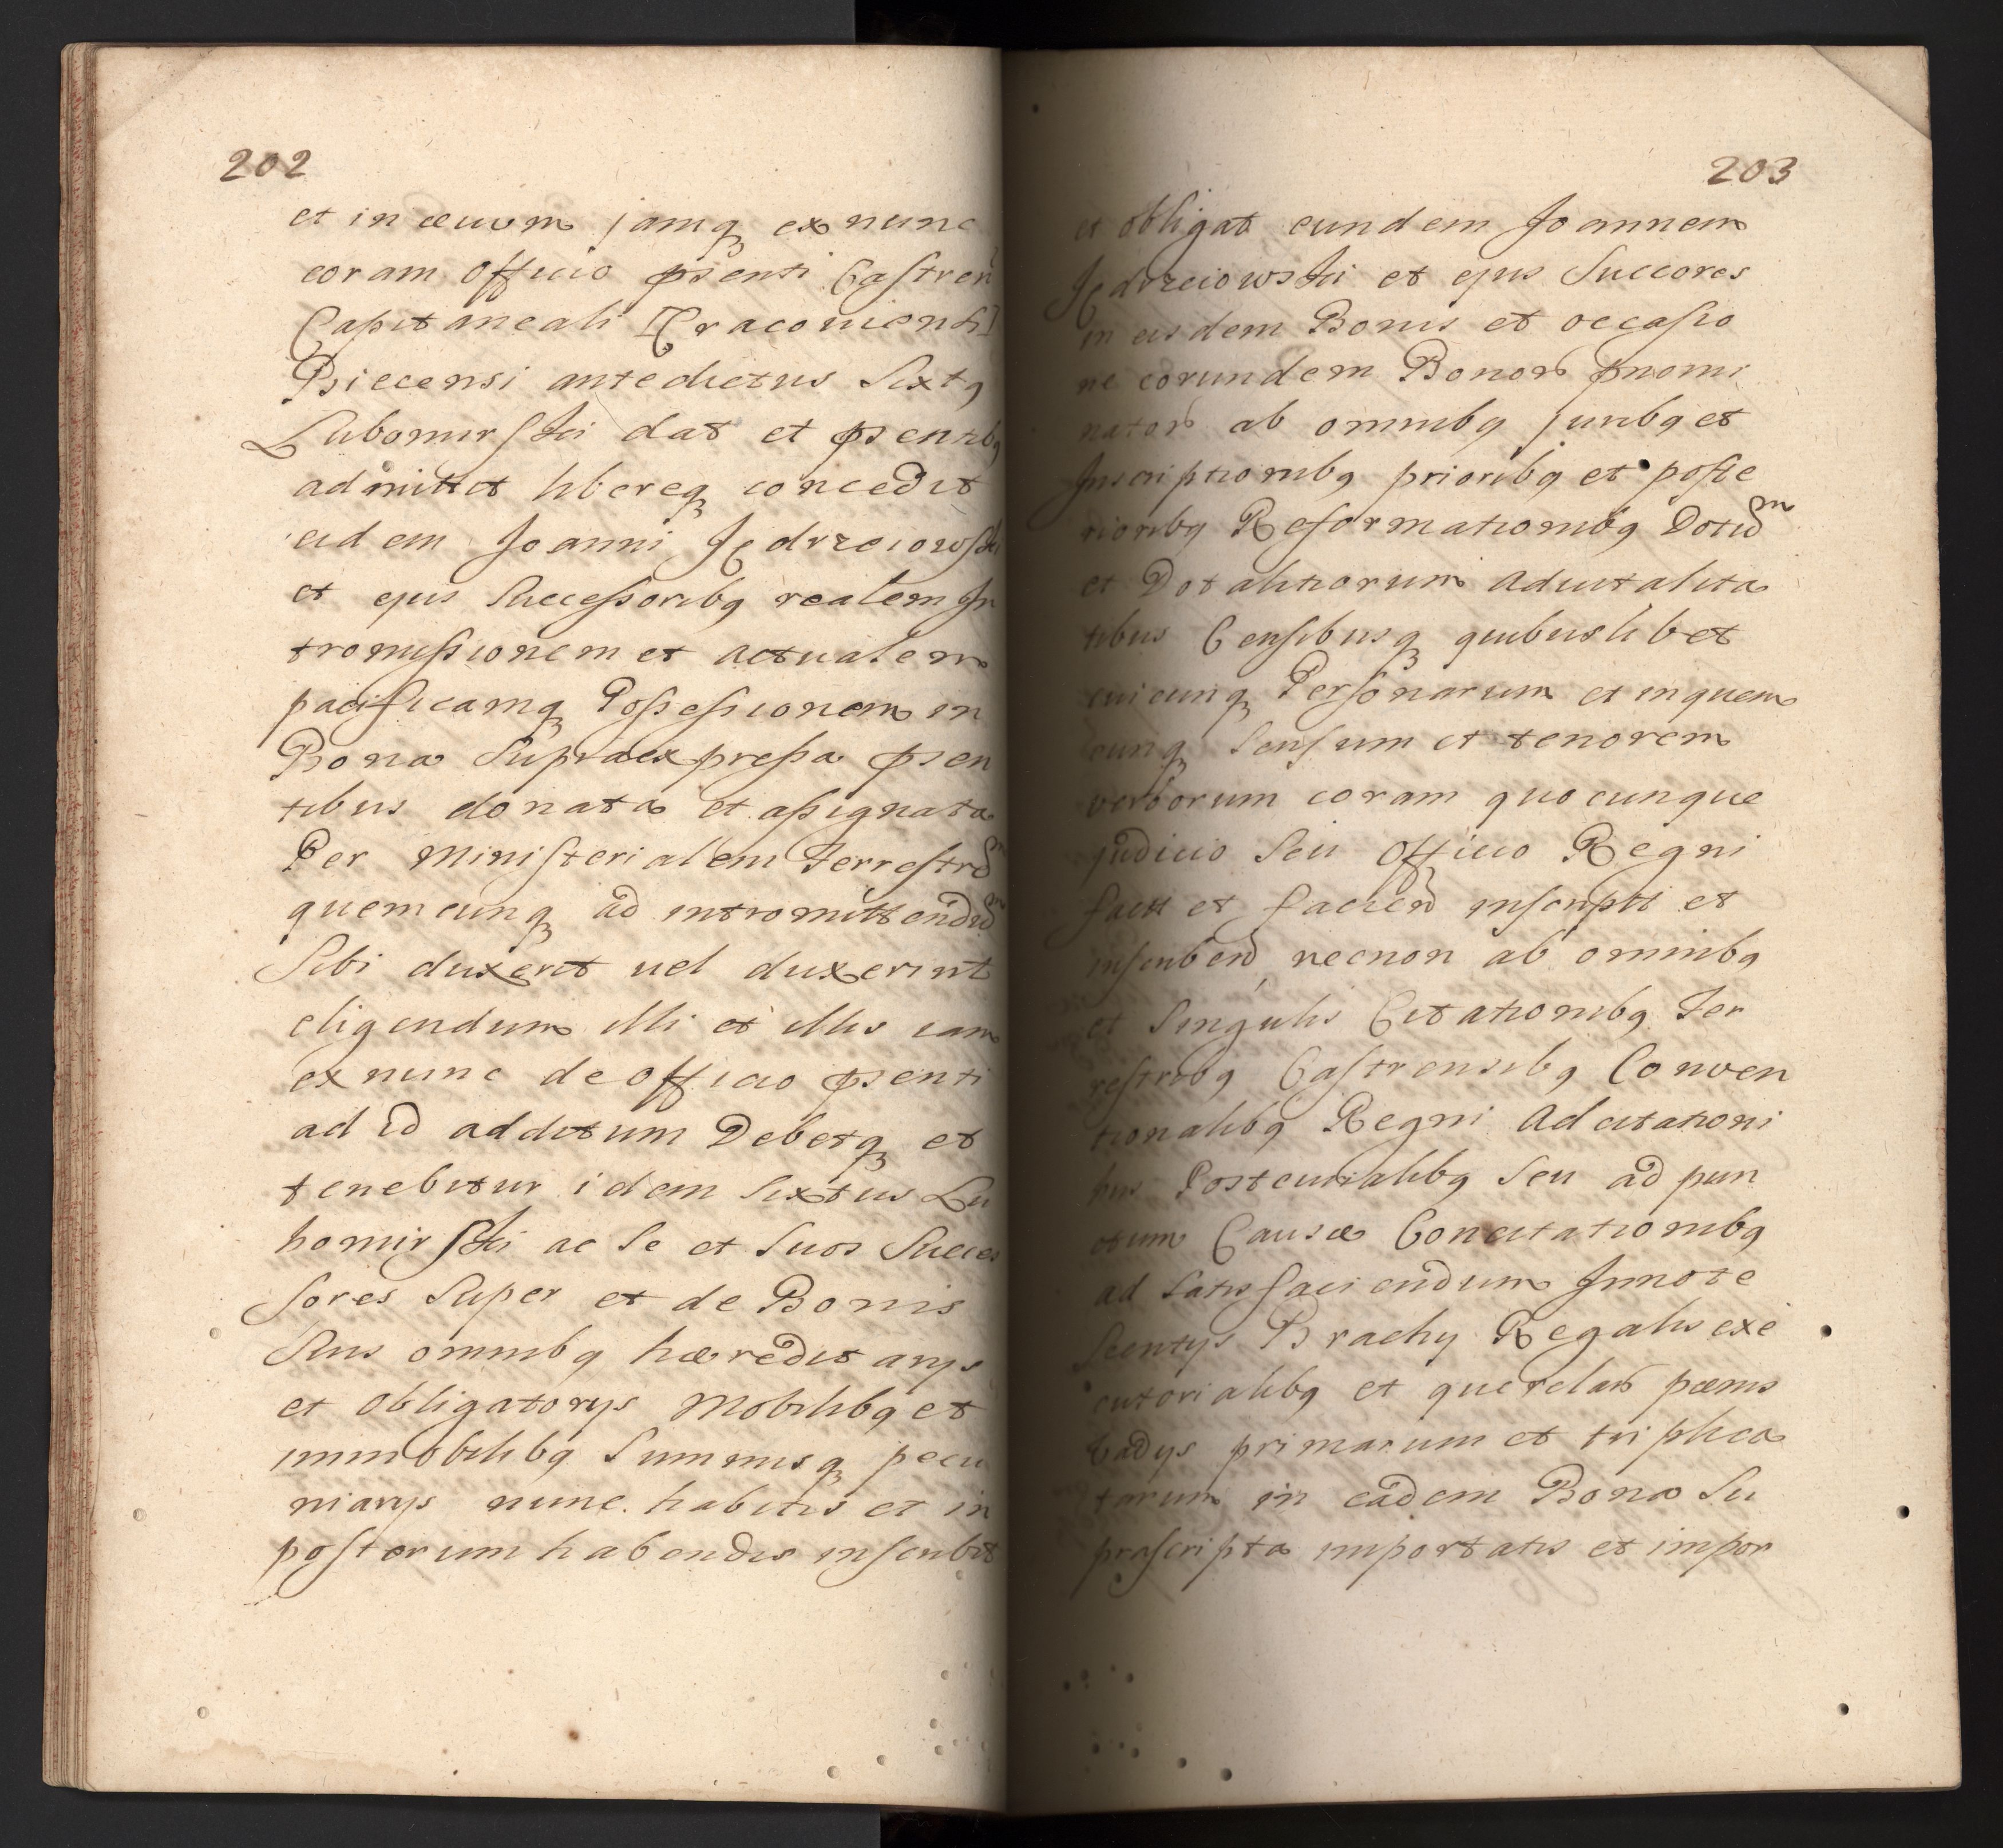 202
et in æuum jamq̃ ex nunc
coram Officio p̃senti Castren
Capitaneali [Cracouiensi]
Biecensi antedictus Sixtq
Lubomirski dat et p̃sentibq
admittit libereq̃ concedit
eidem Joanni Jędrzeiowski
et ejus Successoribq realem In
tromissionem et actualem
pacificamq̃ Possessionem in
Bona Supraexpressa p̃sen
tibus donata et assignata
Per Ministerialem Terrestrem
quemcunq̃ ad intromittendum
Sibi duxerit uel duxerint
eligendum illi et illis iam
ex nunc de officio p̃senti
ad id additum Debetq̃ et
tenebitur idem Sixtus Lu
bomirski ac Se et Suos Succes
sores Super et de Bonis
Suis omnibq hæreditarys
et Obligatorys Mobilibq et
immobilibq Summisq̃ pecu
niarys nunc habitis et in
posterum habendis inscribit
203
et obligat eundem Joannem
Jędrzeiowski et ejus Succores
in eisdem Bonis et occasio
ne eorundem Bonor p̃nomi
nator ab omnibq juribq et
Inscriptionibq prioribq et poste
rioribq Reformationibq Dotium
et Dotalitiorum aduitalita
tibus Censibusq̃ quibuslibet
cuicunq̃ Personarum et in quem
cunq̃ Sensum et tenorem
verborum coram quocunque
judicio Seu Officio Regni
factt et faciend inscriptt et
inscribend necnon ab omnibq
et Singulis Citationibq Ter
restribq Castrensibq Conven
tionalibq Regni Adcitationi
bus Postcurialibq Seu ad pun
ctum Causæ Concitationibq
ad Satisfaciendum Innote
Scentys Brachy Regalis exe
cutorialibq et querelar pœnis
Vadys primarum et triplica
tarum in eadem Bona Su
prascripta importatis et impor